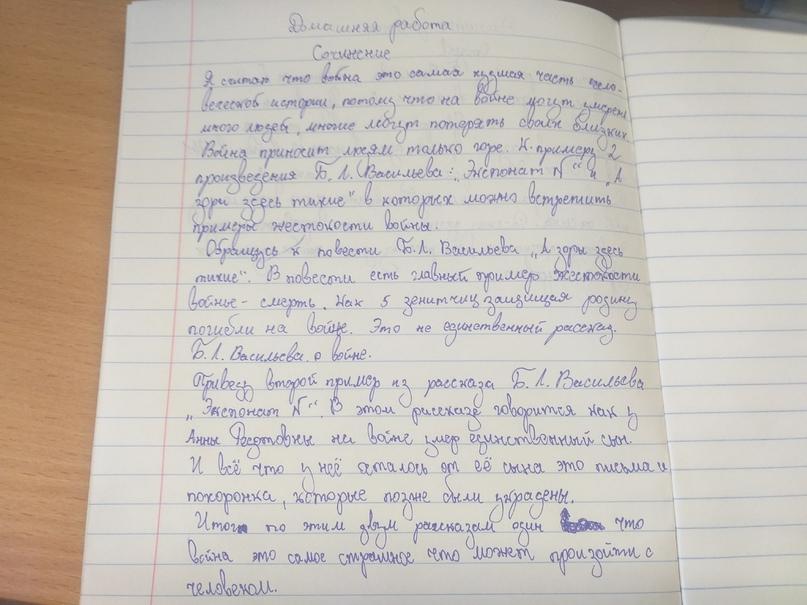 Домашняя работа
Сочинение
Я считаю что война это самая худшая часть чело-
веческой истории, потому что на войне могут умереть
много людей, многие могут потерять своих близких
Война приносит людям только горе. К примеру 2
произведения Б. Л. Васильева: „Экспонат №“ и „А
зори здесь тихие“ в которых можно встретить
примеры жестокости войны.
Обращусь к повести Б.Л. Васильева „А зори здесь
тихие“. В повести есть главный пример жестокости
войны - смерть. Как 5 зенитчиц защищая родину
погибли на войне. Это не единственный рассказ.
Б.Л. Васильева о войне.
Приведу второй пример из рассказа Б.Л. Васильева
„Экспонат №“. В этом рассказе говорится как у
Анны Федотовны на войне умер единственный сын.
И всё что у неё осталось от её сына это письма и
похоронка, которые позже были украдены.
Итог по этим двум рассказам один что
война это самое страшное что может произойти с
человеком.